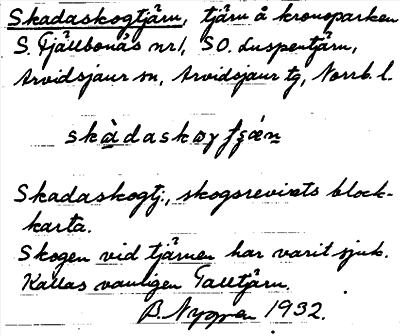 Skadaskogtjärn, tjärn å kronoparken
S. Fjällbonäs nr1, SO. Luspentjärn,
Arvidsjaur sn, Arvidsjaur tg, Norrb. l.
Skadaskogtj., skogsrevirets block-
karta.
Skogen vid tjärnen har varit sjuk.
Kallas vanligen Talltjärn.
B. Nygren 1932.